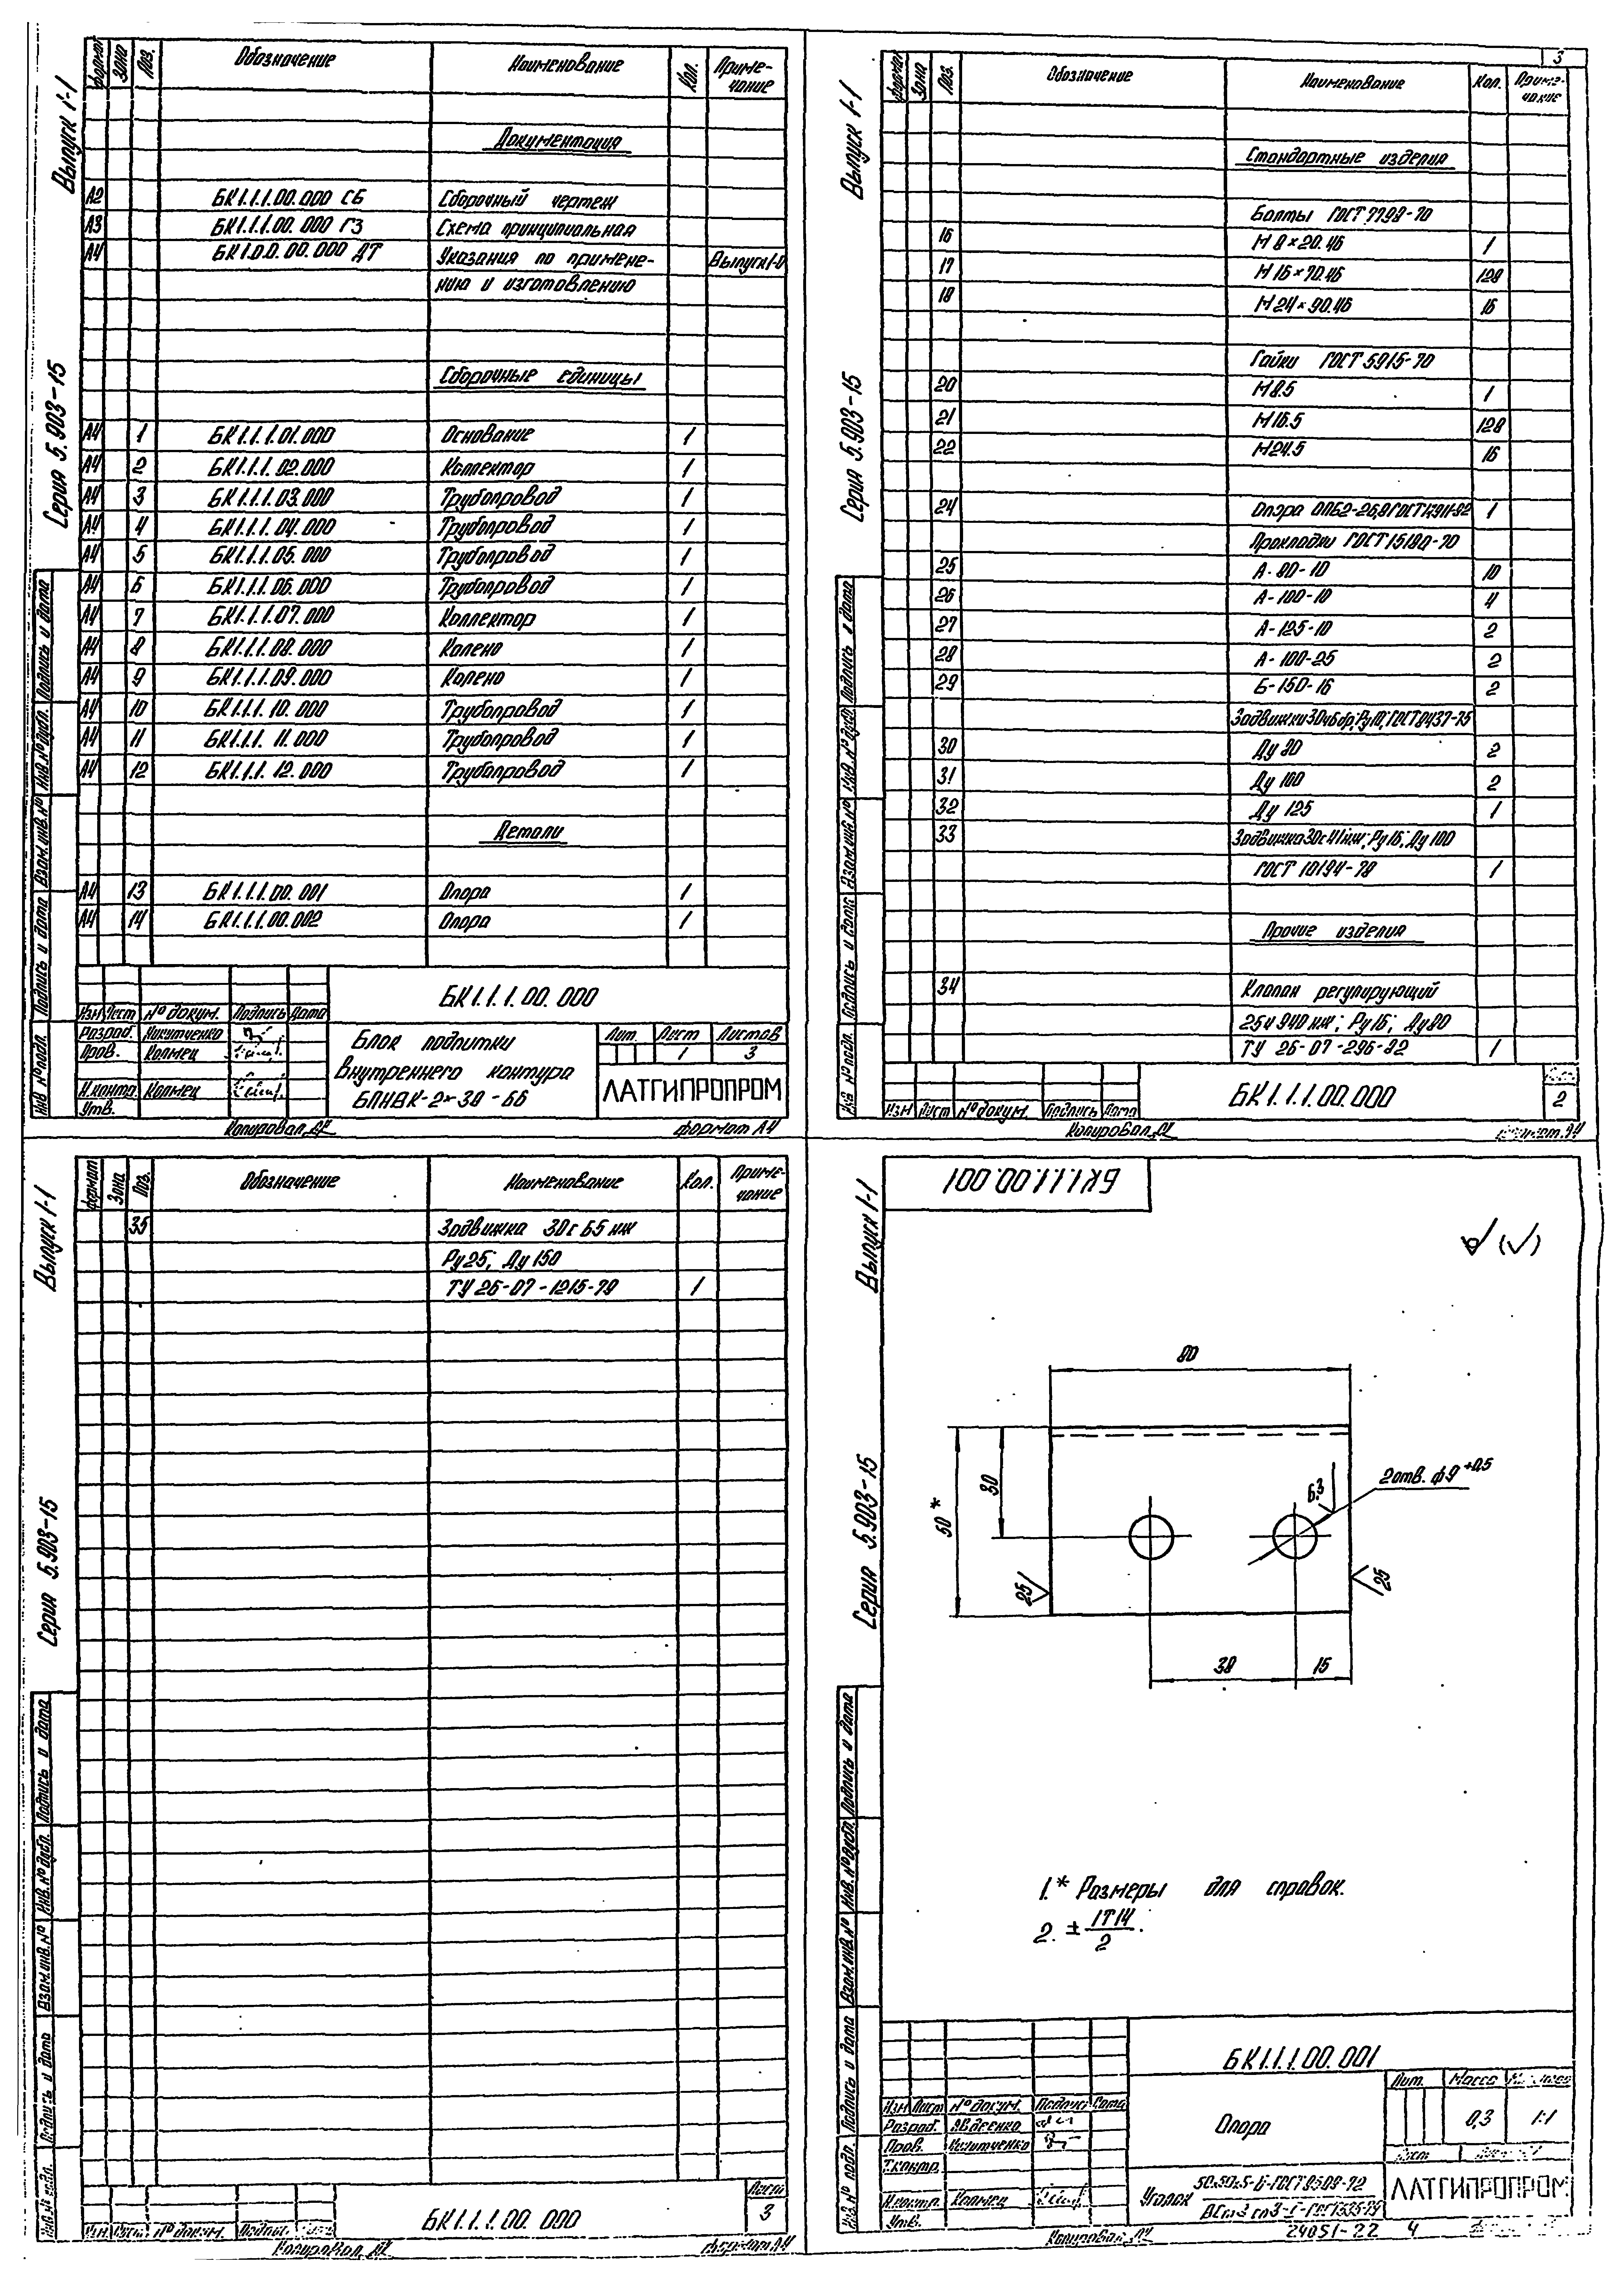 Выпуск 1-1
Серия 5.903-15
Формат Зона Поз. Обозначение Наименование Кол. Приме-
чание
Документация
А2 БК1.1.1.00.000 СБ Сборочный чертеж
А3 БК1.1.1.00.000 ГЗ Схема принципиальная
А4 БК1.0.0.00.000 ДТ Указания по примене- Выпуск 1-0
нию и изготовлению
Сборочные единицы
А4 1 БК1.1.1.01.000 Основание 1
А4 2 БК1.1.1.02.000 Коллектор 1
А4 3 БК1.1.1.03.000 Трубопровод 1
А4 4 БК1.1.1.04.000 Трубопровод 1
А4 5 БК1.1.1.05.000 Трубопровод 1
А4 6 БК1.1.1.06.000 Трубопровод 1
А4 7 БК1.1.1.07.000 Коллектор 1
А4 8 БК1.1.1.08.000 Колено 1
А4 9 БК1.1.1.09.000 Колено 1
А4 10 БК1.1.1.10.000 Трубопровод 1
А4 11 БК1.1.1.11.000 Трубопровод 1
А4 12 БК1.1.1.12.000 Трубопровод 1
Детали
А4 13 БК1.1.1.00.001 Опора 1
А4 14 БК1.1.1.00.002 Опора 1
Инв № подл. Подпись и дата Взам.инв.№ Инв.№ дубл. Подпись и дата
БК1.1.1.00.000
Изм Лист № докум. Подпись Дата
Разраб. Никитченко
Пров. Колмец
Н.контр. Колмец
Утв.
Блок подпитки
внутреннего контура
БПНВК-2*38-66
Лит. Лист Листов
1 3
ЛАТГИПРОПРОМ
Копировал формат А4
3
Выпуск 1-1
Серия 5.903-15
Формат Зона Поз. Обозначение Наименование Кол. Приме-
чание
Стандартные изделия
Болты ГОСТ 7798-70
16 М 8×20.46 1
17 М 16×70.46 128
18 М 24×90.46 16
Гайки ГОСТ 5915-70
20 М8.5 1
21 М16.5 128
22 М24.5 16
24 Опора ОПБ2- 1
Прокладки ГОСТ 15180-70
25 А-80-10 10
26 А-100-10 4
27 А-125-10 2
28 А-100-25 2
29 Б-150-16 2
Задвижки 30ч6бр; Ру10; ГОСТ 8437-75
30 Ду 80 2
31 Ду 100 2
32 Ду 125 1
33 Задвижка 30с41нж; Ру16; Ду100
ГОСТ 10194-78 1
Прочие изделия
34 Клапан регулирующий
25ч 940 нж; Ру16; Ду80
ТУ 26-07-296-82 1
Инв № подл. Подпись и дата Взам.инв.№ Инв.№ дубл. Подпись и дата
Изм Лист № докум. Подпись Дата
БК1.1.1.00.000
2
Копировал
Выпуск 1-1
Серия 5.903-15
Формат Зона Поз. Обозначение Наименование Кол. Приме-
чание
35 Задвижка 30с 65 нж
Ру25; Ду150
ТУ 26-07-1215-79 1
Инв.№ подл. Подпись и дата Взам.инв.№ Инв.№ дубл. Подпись и дата
Изм Лист № докум. Подпись
БК1.1.1.00.000
Лист
3
Копировал формат А4
Выпуск 1-1
Серия 5.903-15
БК1.1.1.00.001
80
50*
30
2отв. ф9 +0,5
6.3
25
25
38
15
1.* Размеры для справок.
2. ± IT14/2.
Инв.№ подл. Подпись и дата Взам.инв.№ Инв.№ дубл. Подпись и дата
БК1.1.1.00.001
Изм Лист № докум. Подпись Дата
Разраб. Авдеенко
Пров. Никитченко
Т.контр.
Н.контр. Колмец
Утв.
Опора
Лит. Масса
0,3 1:1
Лист
Уголок 50×50×5-Б-ГОСТ 8509-72
ВСт3 сп3-I-ГОСТ 535-79
ЛАТГИПРОПРОМ
Копировал
24051-22 4